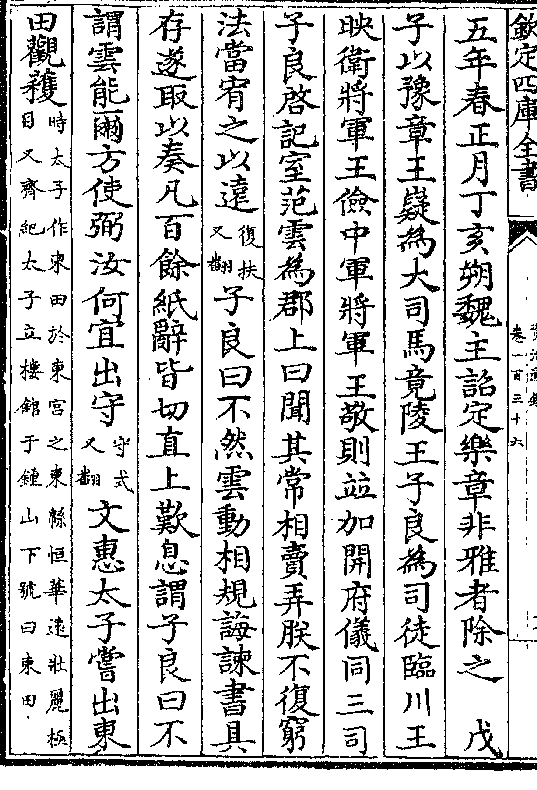 欽定四庫全書
資治通鑑
卷一百三十六
五年春正月丁亥朔魏主詔定樂章非雅者除之　戊
子以豫章王嶷為大司馬竟陵王子良為司徒臨川王
映衛將軍王儉中軍將軍王敬則並加開府儀同三司
子良啓記室范雲為郡上曰聞其常相賣弄朕不復窮
法當宥之以遠復扶又翻子良曰不然雲動相規誨諫書具
存遂取以奏凡百餘紙辭皆切直上歎息謂子良曰不
謂雲能爾方使弼汝何宜出守守式又翻文惠太子嘗出東
田觀穫時太子作東田於東宮之東緜恒華逺壯麗極目又齊紀太子立樓館于鍾山下號曰東田